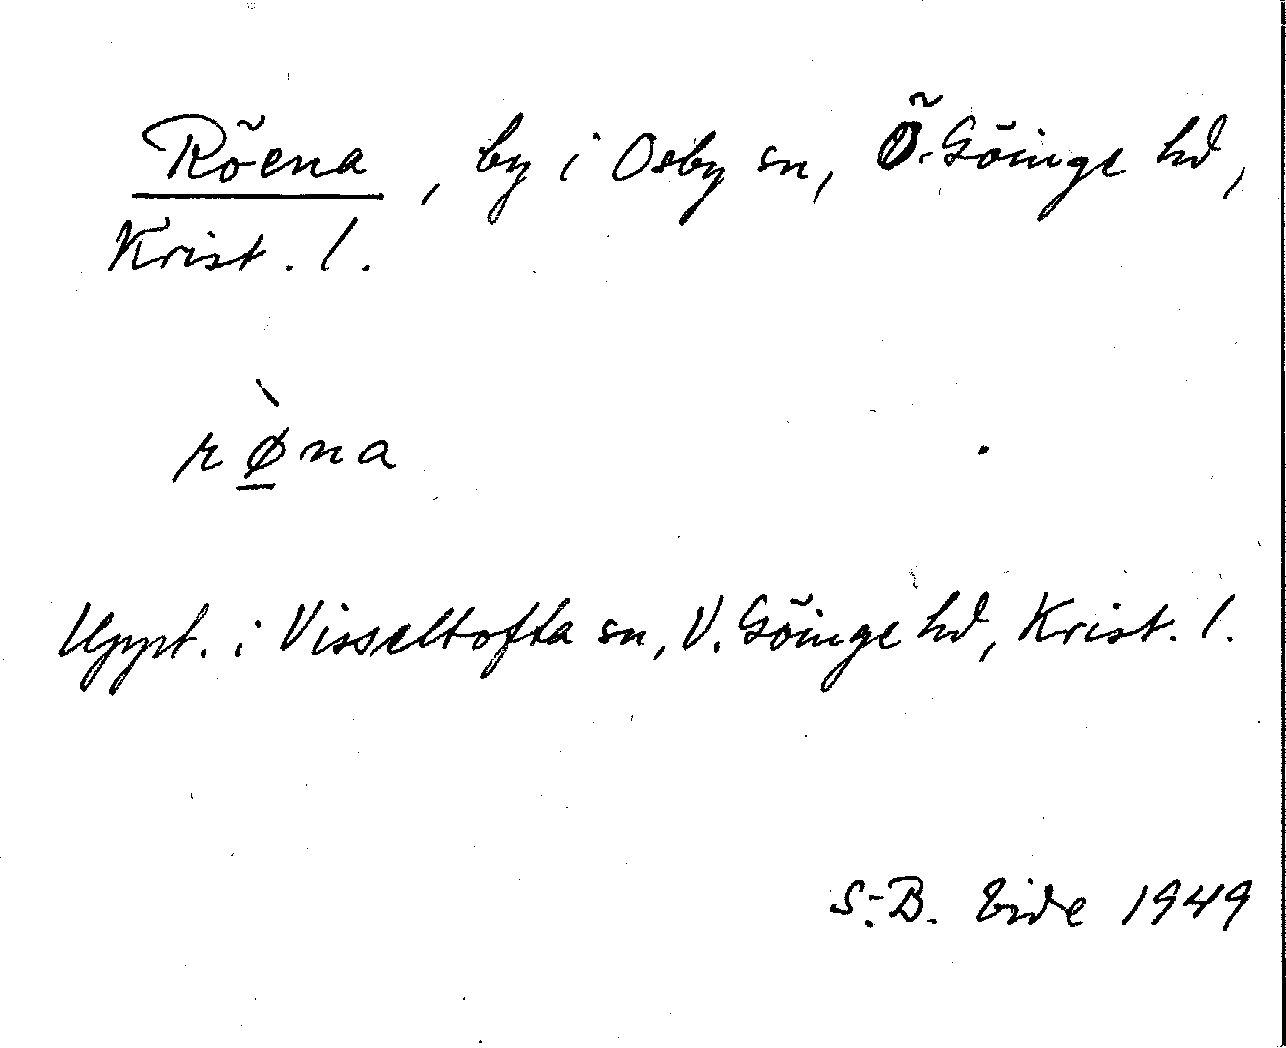 Röena, by i Osby sn, Ö. Göinge hd,
Krist. l.
rø̲̀na
Uppt. i Visseltofta sn, V. Göinge hd, Krist. l.
S.-B. Vide 1949